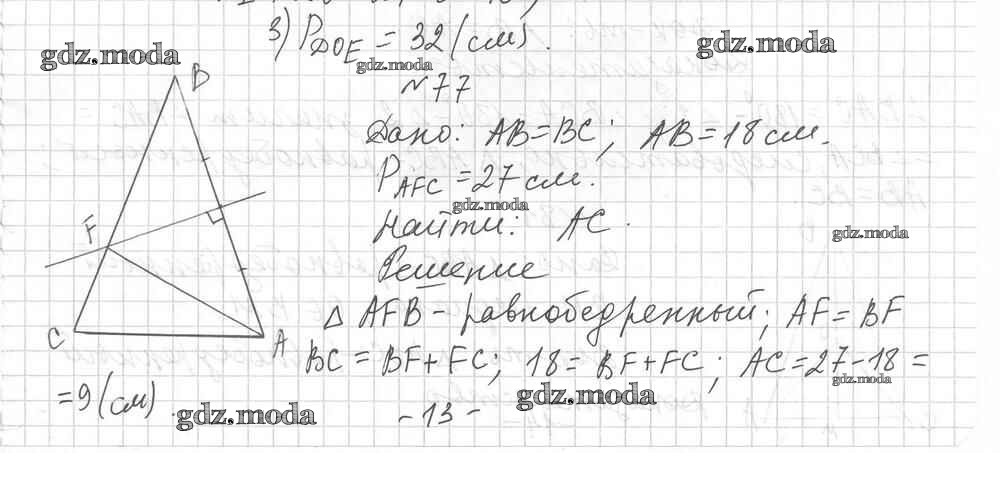 3) P_DOE = 32 (см).
gdz.moda
gdz.moda
gdz.moda
№77
B
Дано: AB=BC; AB=18 см.
P_AFC = 27 см.
gdz.moda
F
Найти: AC.
gdz.moda
Решение
△ AFB - равнобедренный; AF = BF
C
A
BC = BF+FC; 18 = BF+FC; AC = 27-18 =
gdz.moda
= 9 (см)
gdz.moda
gdz.moda
- 13 -